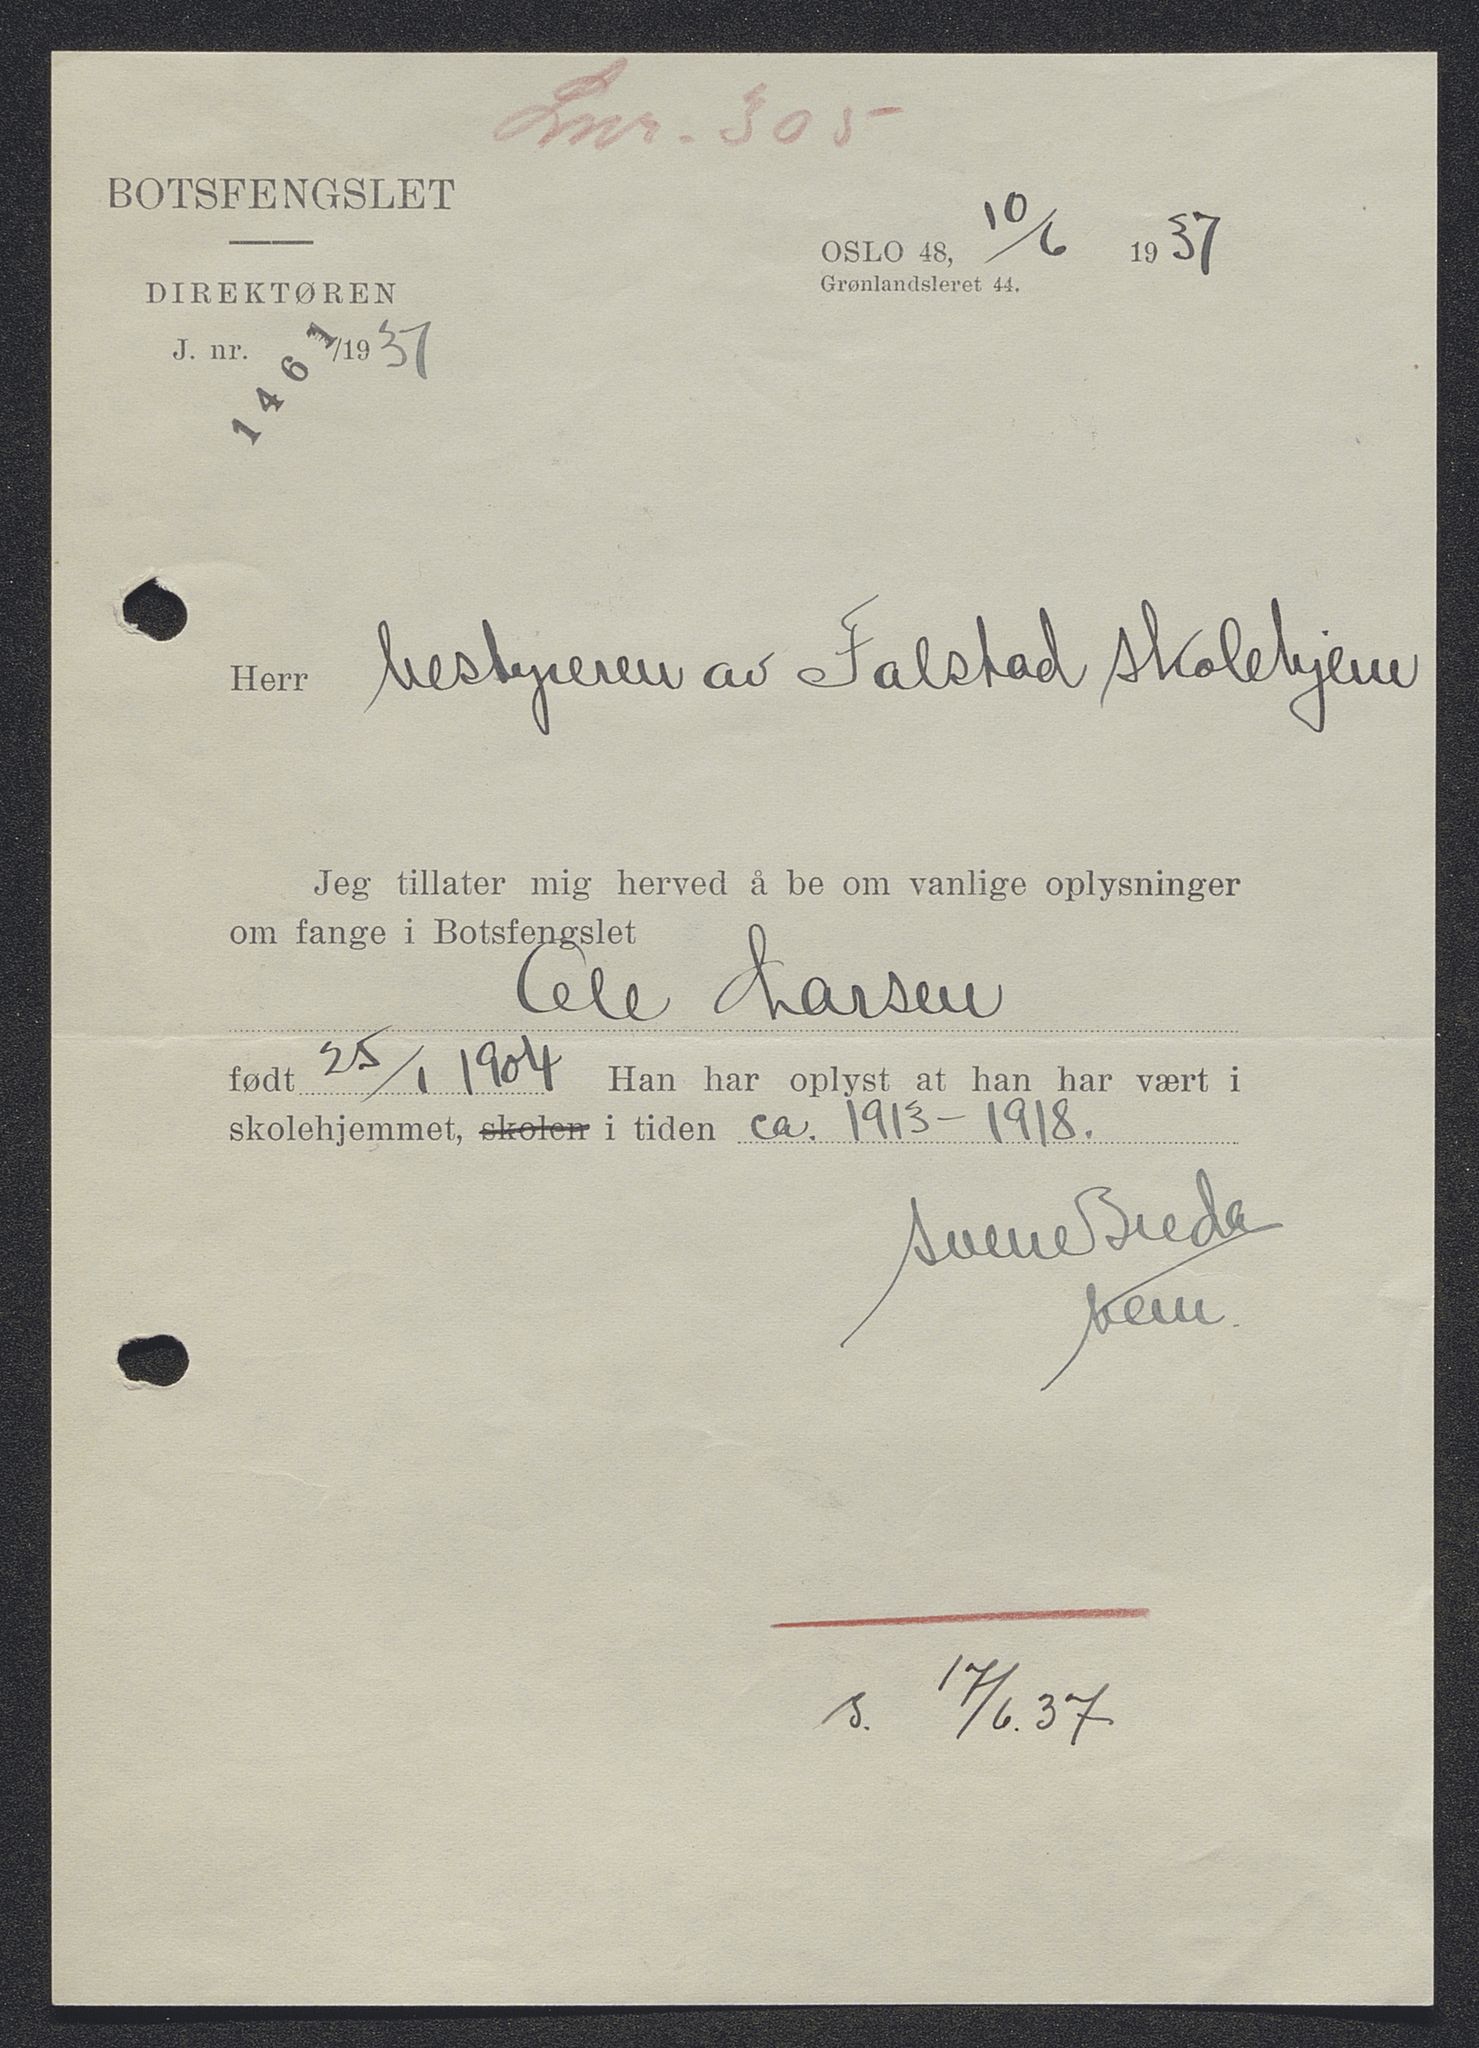 Lnr. 305
BOTSFENGSLET
DIREKTØREN
J. nr. 1461/1937
OSLO 48, 10/6 1937
Grønlandsleret 44.
Herr bestyreren av Falstad skolehjem
Jeg tillater mig herved å be om vanlige oplysninger
om fange i Botsfengslet
Ole Larsen
født 25/1 1904 Han har oplyst at han har vært i
skolehjemmet, skolen i tiden ca. 1913-1918.
s. 17/6.37